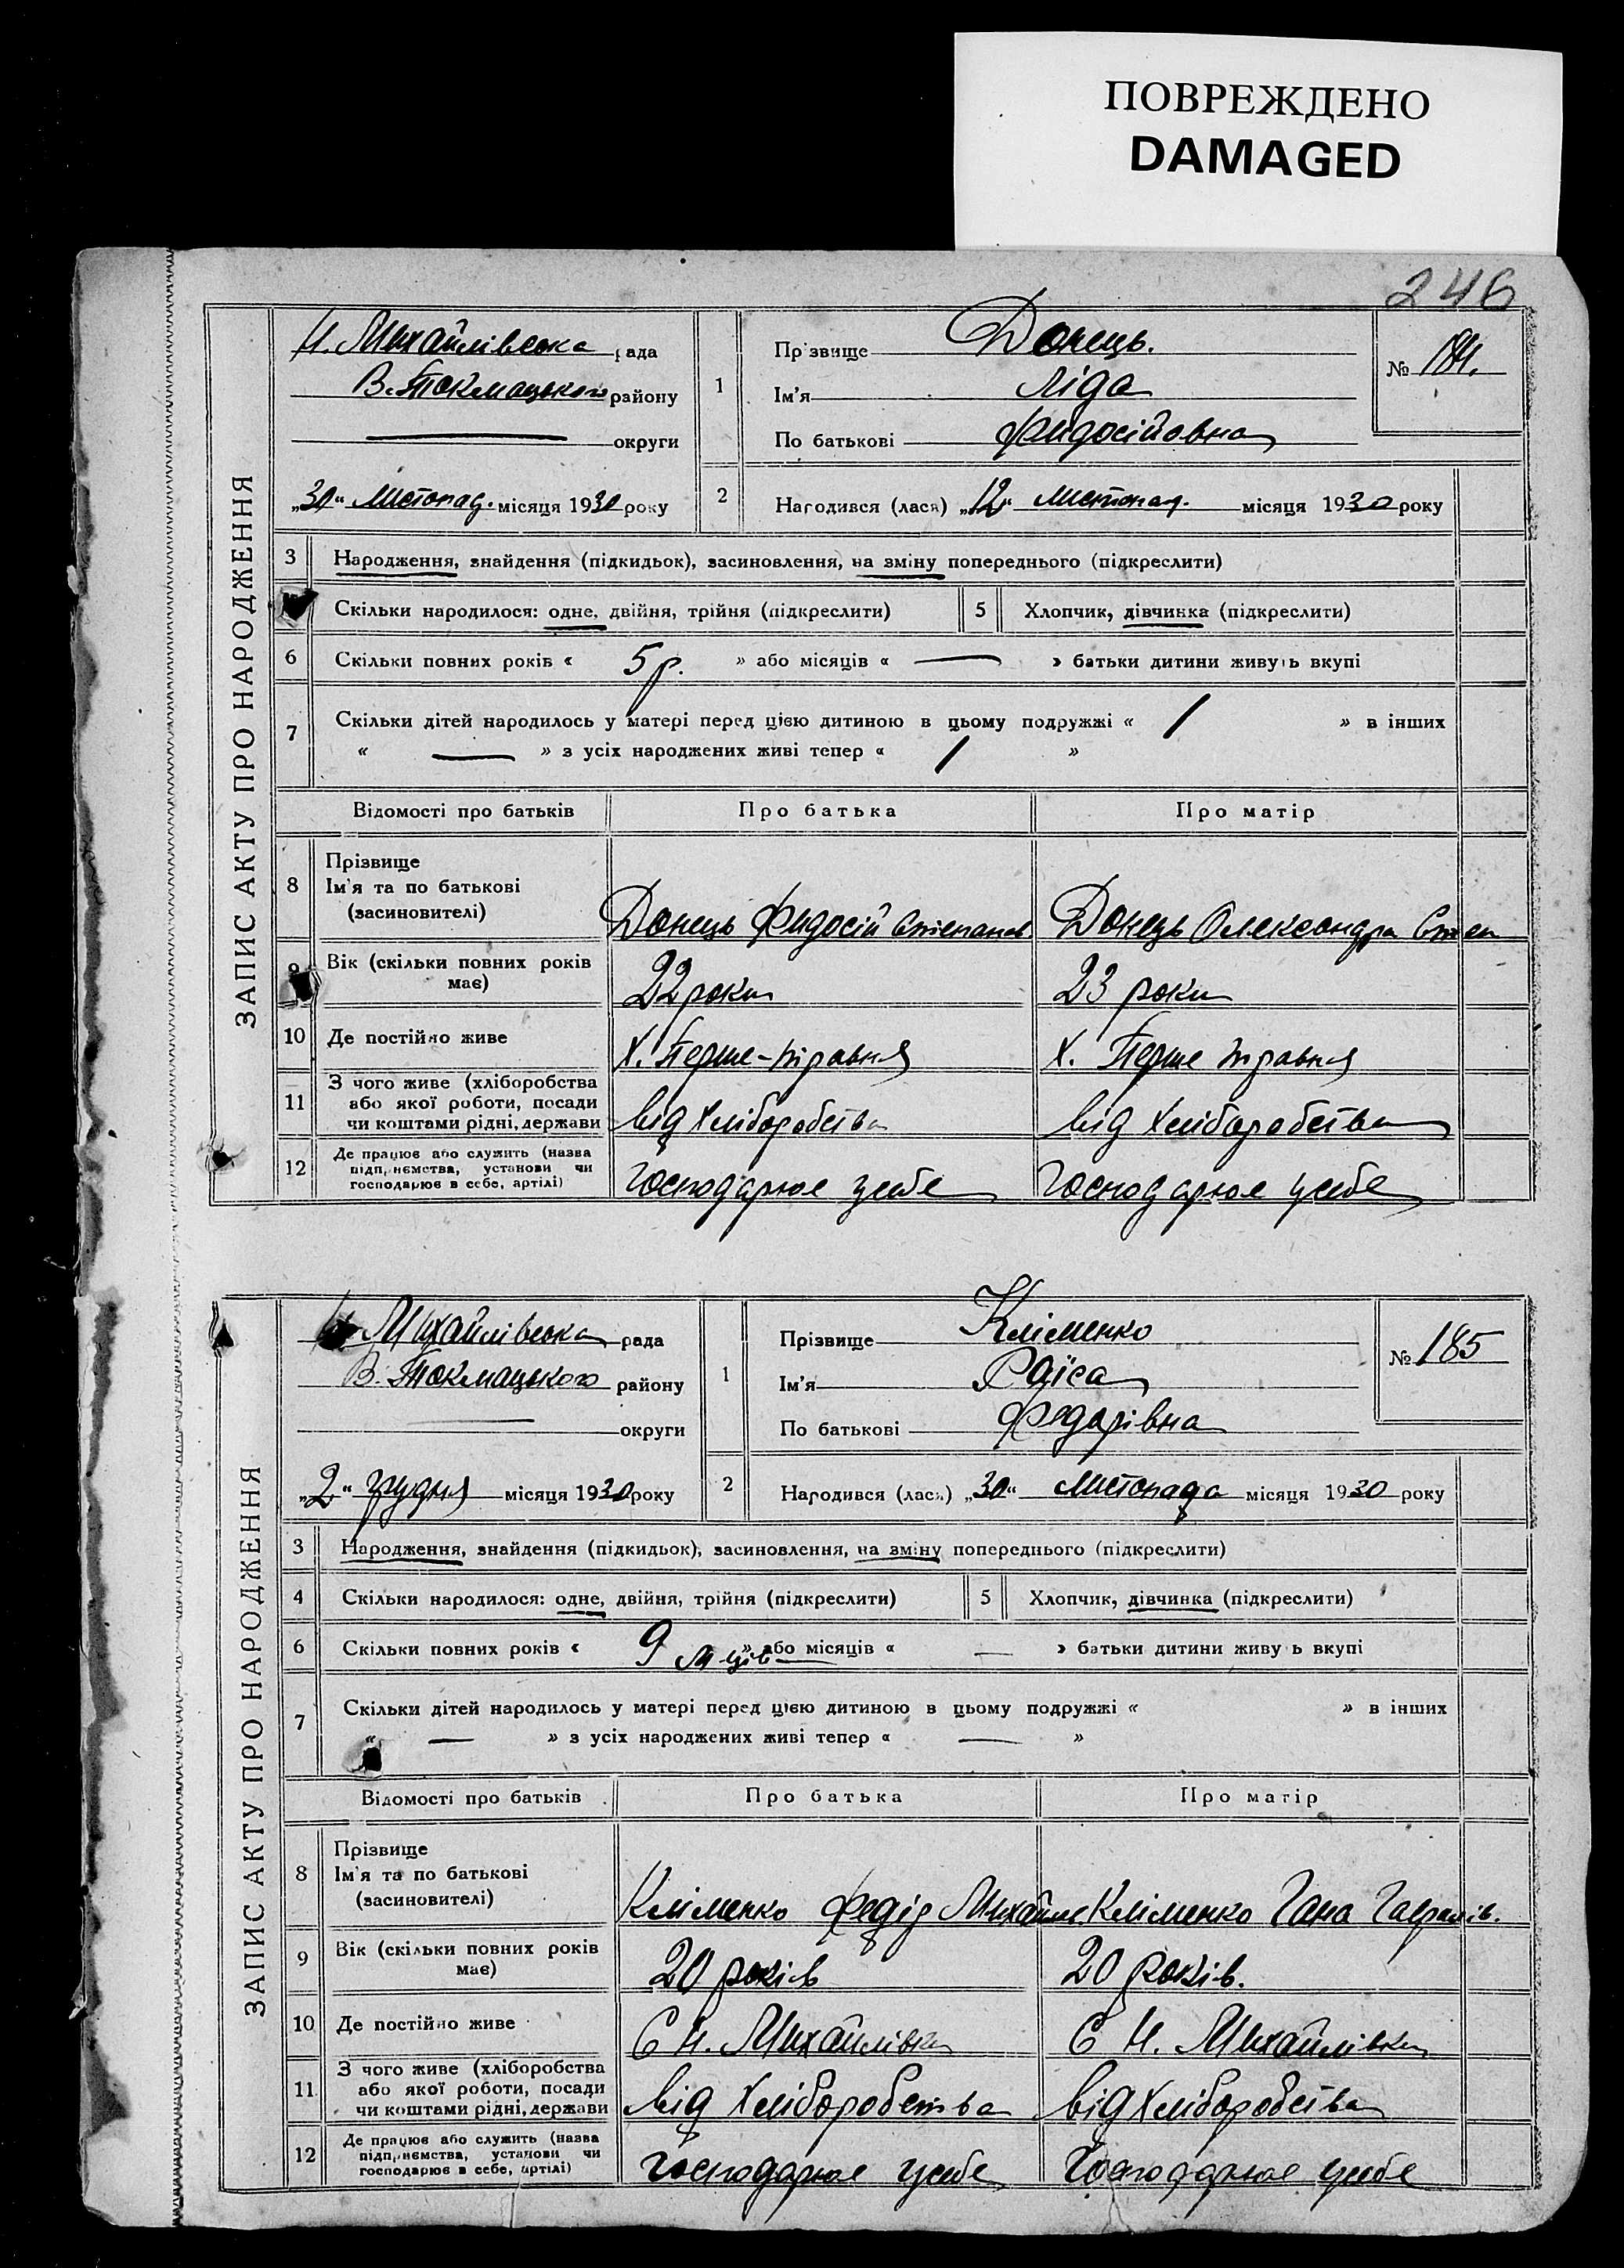 ПОВРЕЖДЕНО
DAMAGED
246
ЗАПИС АКТУ ПРО НАРОДЖЕННЯ
Н. Михайлівська рада
В. Токмацького району
округи
„30“ Листопад. місяця 1930 року
1
Прізвище Донець.
Ім'я Ліда
По батькові Фидосійовна
№ 184.
2
Народився (лася) „12“ листопад. місяця 1930 року
3 Народження, знайдення (підкидьок), засиновлення, на зміну попереднього (підкреслити)
Скільки народилося: одне, двійня, трійня (підкреслити) 5 Хлопчик, дівчинка (підкреслити)
6 Скільки повних років « 5 р. » або місяців « — » батьки дитини живуть вкупі
7 Скільки дітей народилось у матері перед цією дитиною в цьому подружжі « 1 » в інших
« — » з усіх народжених живі тепер « 1 »
Відомості про батьків Про батька Про матір
8 Прізвище
Ім'я та по батькові
(засиновителі)
Донець Фидосій Степанов Донець Олександра Степ
9 Вік (скільки повних років має) 22 роки 23 роки
10 Де постійно живе Х. Перше-травня Х. Перше травня
11 З чого живе (хліборобства
або якої роботи, посади
чи коштами рідні, держави від хліборобства від хліборобства
12 Де працює або служить (назва
підприємства, установи чи
господарює в себе, артілі) Господарює усебе Господарює усебе
ЗАПИС АКТУ ПРО НАРОДЖЕННЯ
Михайлівська рада
В. Токмацького району
округи
„2“ грудня місяця 1930 року
1
Прізвище Кліменко
Ім'я Раїса
По батькові Федорівна
№ 185
2
Народився (лася) „30“ листопада місяця 1930 року
3 Народження, знайдення (підкидьок), засиновлення, на зміну попереднього (підкреслити)
4 Скільки народилося: одне, двійня, трійня (підкреслити) 5 Хлопчик, дівчинка (підкреслити)
6 Скільки повних років « 9 м-ців » або місяців « — » батьки дитини живуть вкупі
7 Скільки дітей народилось у матері перед цією дитиною в цьому подружжі « » в інших
« — » з усіх народжених живі тепер « — »
Відомості про батьків Про батька Про матір
8 Прізвище
Ім'я та по батькові
(засиновителі)
Кліменко Федір Михайл Кліменко Гана Гаврилів.
9 Вік (скільки повних років має) 20 років 20 років.
10 Де постійно живе С Н. Михайлівка С Н. Михайлівка
11 З чого живе (хліборобства
або якої роботи, посади
чи коштами рідні, держави від хліборобства від хліборобства
12 Де працює або служить (назва
підприємства, установи чи
господарює в себе, артілі) Господарює усебе Господарює усебе